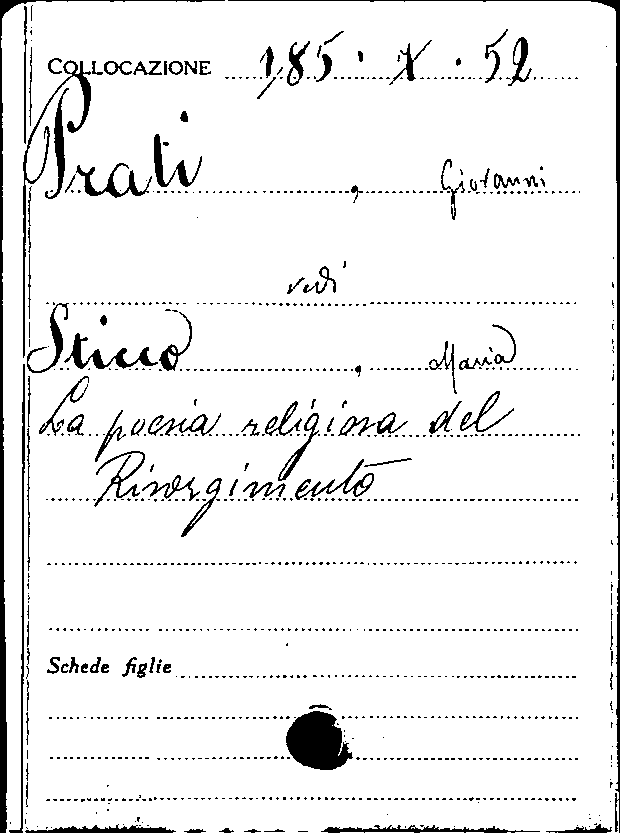 COLLOCAZIONE 185. X. 52
Prati, Giovanni
vedi
Sticco, Maria
La poesia religiosa del
Risorgimento
Schede figlie